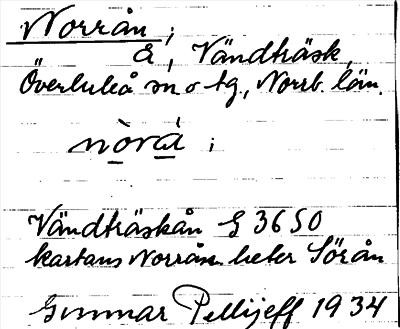 Norrån ;
å, Vändträsk,
Överluleå sn o tg., Norrb. län.
nòrá̀ ;
Vändträskån G 3650
kartans Norrån heter Sörån
Gunnar Pellijeff 1934